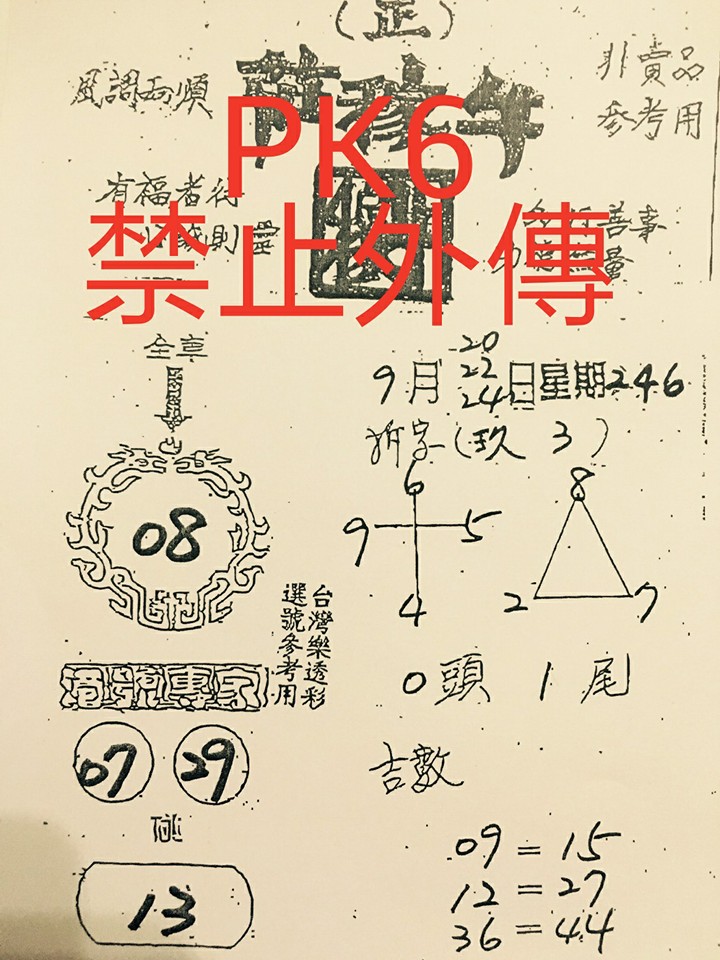 (正)
非賣品
參考用
風調雨順
PK6
有福者行
心誠則靈
善事
量
禁止外傳
全專
9月20 22 24日星期246
拆字(玖 3)
08
6
9 5
4
8
2 7
台灣樂透彩
選號參考用
0頭 1尾
選號專家
07 29
吉數
碰
09=15
13
12=27
36=44